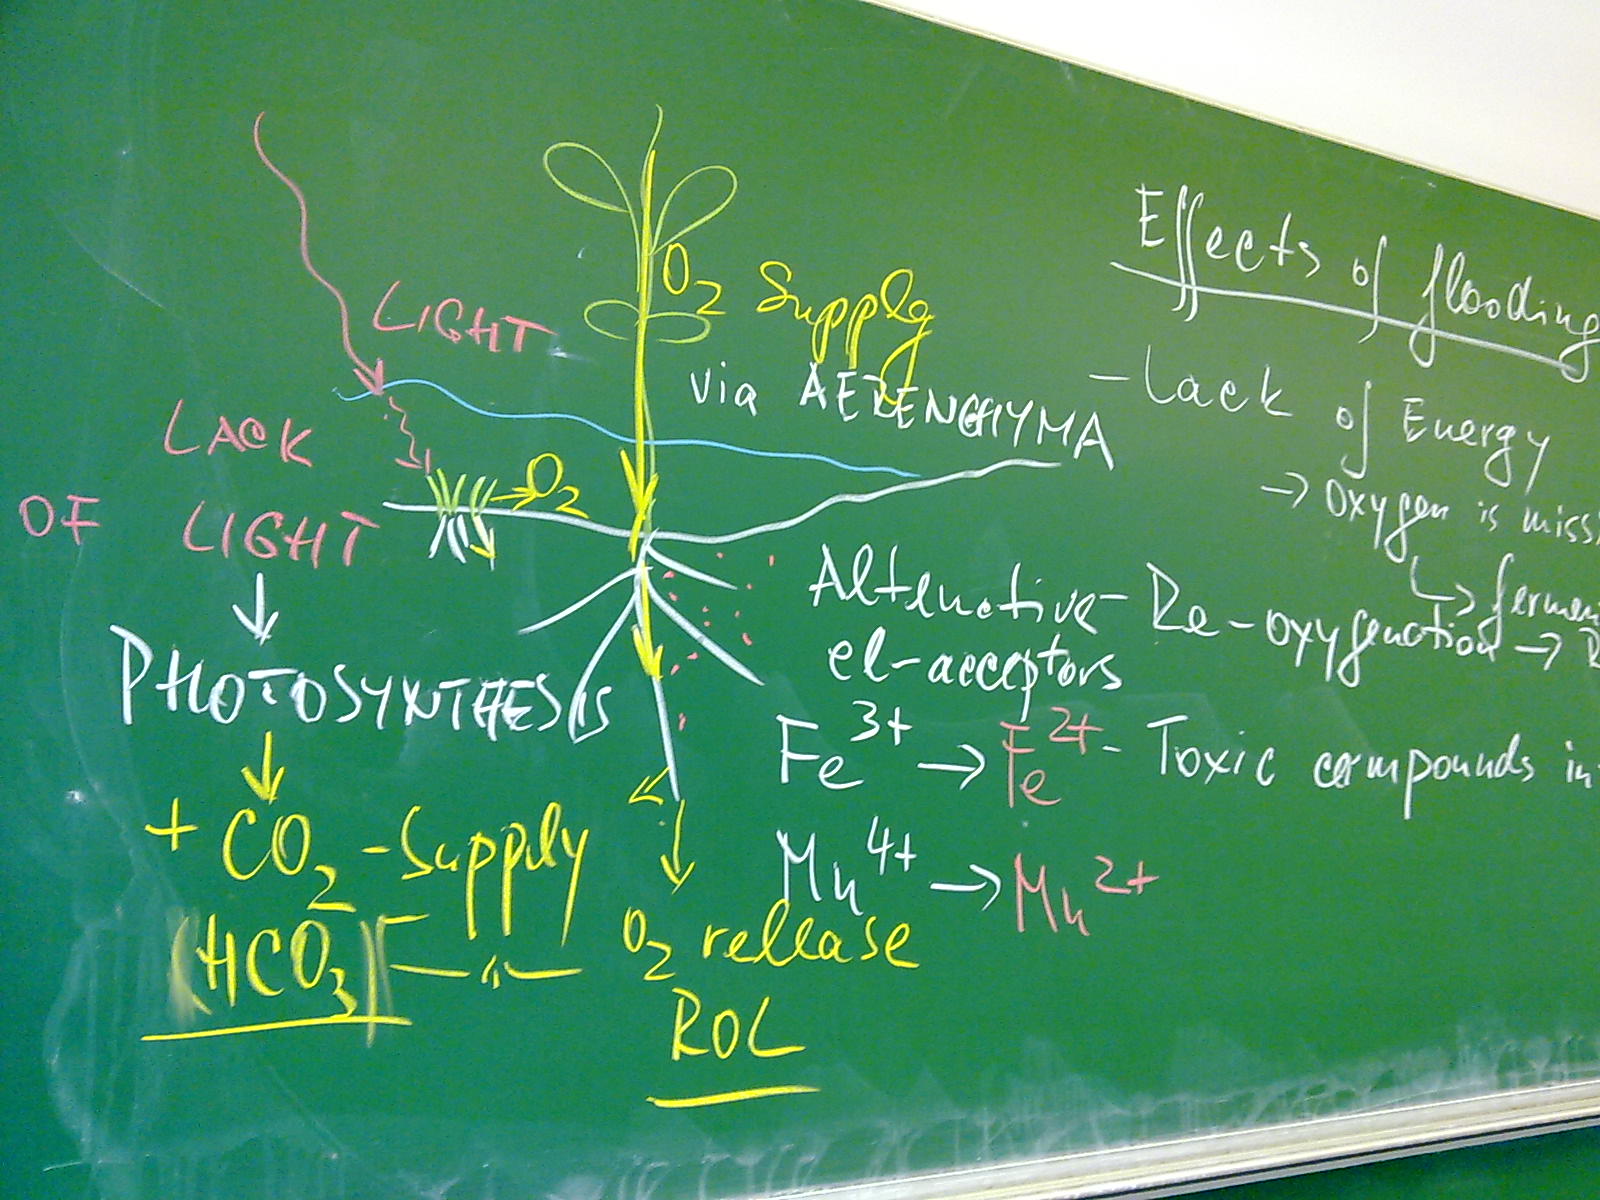 LIGHT
LACK
OF LIGHT
PHOTOSYNTHESIS
+ CO2 - Supply
(HCO3)
O2
O2 Supply
via AERENCHYMA
O2 release
ROL
Alternative
el-acceptors
Fe3+ → Fe2+
Mn4+ → Mn2+
Effects of flooding
- Lack of Energy
→ Oxygen is miss
↳ fermen
- Re-oxygenation →
- Toxic compounds in